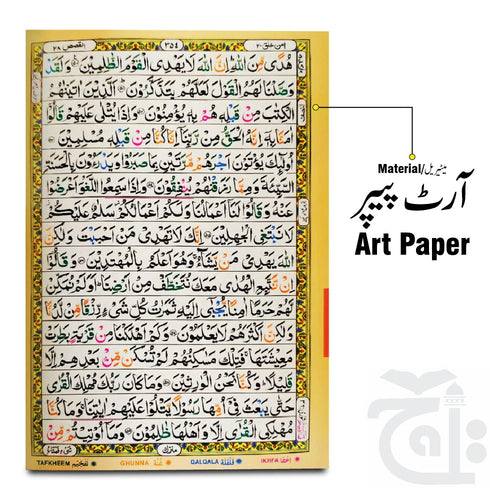 القصص ٢٨
٣٥٤
امن خلق ٢٠
هُدًى مِّنَ اللّٰهِ اِنَّ اللّٰهَ لَا يَهْدِى الْقَوْمَ الظّٰلِمِيْنَ وَلَقَدْ
وَصَّلْنَا لَهُمُ الْقَوْلَ لَعَلَّهُمْ يَتَذَكَّرُوْنَ اَلَّذِيْنَ اٰتَيْنٰهُمُ
الْكِتٰبَ مِنْ قَبْلِهٖ هُمْ بِهٖ يُؤْمِنُوْنَ وَاِذَا يُتْلٰى عَلَيْهِمْ قَالُوْٓا
اٰمَنَّا بِهٖٓ اِنَّهُ الْحَقُّ مِنْ رَّبِّنَآ اِنَّا كُنَّا مِنْ قَبْلِهٖ مُسْلِمِيْنَ
اُولٰٓئِكَ يُؤْتَوْنَ اَجْرَهُمْ مَّرَّتَيْنِ بِمَا صَبَرُوْا وَيَدْرَءُوْنَ بِالْحَسَنَةِ
السَّيِّئَةَ وَمِمَّا رَزَقْنٰهُمْ يُنْفِقُوْنَ وَاِذَا سَمِعُوا اللَّغْوَ اَعْرَضُوْا
عَنْهُ وَقَالُوْا لَنَآ اَعْمَالُنَا وَلَكُمْ اَعْمَالُكُمْ سَلٰمٌ عَلَيْكُمْ
لَا نَبْتَغِى الْجٰهِلِيْنَ اِنَّكَ لَا تَهْدِيْ مَنْ اَحْبَبْتَ وَلٰكِنَّ
اللّٰهَ يَهْدِيْ مَنْ يَّشَآءُ وَهُوَ اَعْلَمُ بِالْمُهْتَدِيْنَ وَقَالُوْٓا
اِنْ نَّتَّبِعِ الْهُدٰى مَعَكَ نُتَخَطَّفْ مِنْ اَرْضِنَا اَوَلَمْ نُمَكِّنْ
لَّهُمْ حَرَمًا اٰمِنًا يُّجْبٰٓى اِلَيْهِ ثَمَرٰتُ كُلِّ شَيْءٍ رِّزْقًا مِّنْ لَّدُنَّا
وَلٰكِنَّ اَكْثَرَهُمْ لَا يَعْلَمُوْنَ وَكَمْ اَهْلَكْنَا مِنْ قَرْيَةٍ بَطِرَتْ
مَعِيْشَتَهَا فَتِلْكَ مَسٰكِنُهُمْ لَمْ تُسْكَنْ مِّنْ بَعْدِهِمْ اِلَّا
قَلِيْلًا وَكُنَّا نَحْنُ الْوٰرِثِيْنَ وَمَا كَانَ رَبُّكَ مُهْلِكَ الْقُرٰى
حَتّٰى يَبْعَثَ فِيْٓ اُمِّهَا رَسُوْلًا يَّتْلُوْا عَلَيْهِمْ اٰيٰتِنَا وَمَا كُنَّا
مُهْلِكِى الْقُرٰٓى اِلَّا وَاَهْلُهَا ظٰلِمُوْنَ وَمَآ اُوْتِيْتُمْ مِّنْ
منزل ٥
TAFKHEEM تفخيم GHUNNA غنه QALQALA قلقله IKHFA اخفا
Material/میٹیریل
آرٹ پیپر
Art Paper